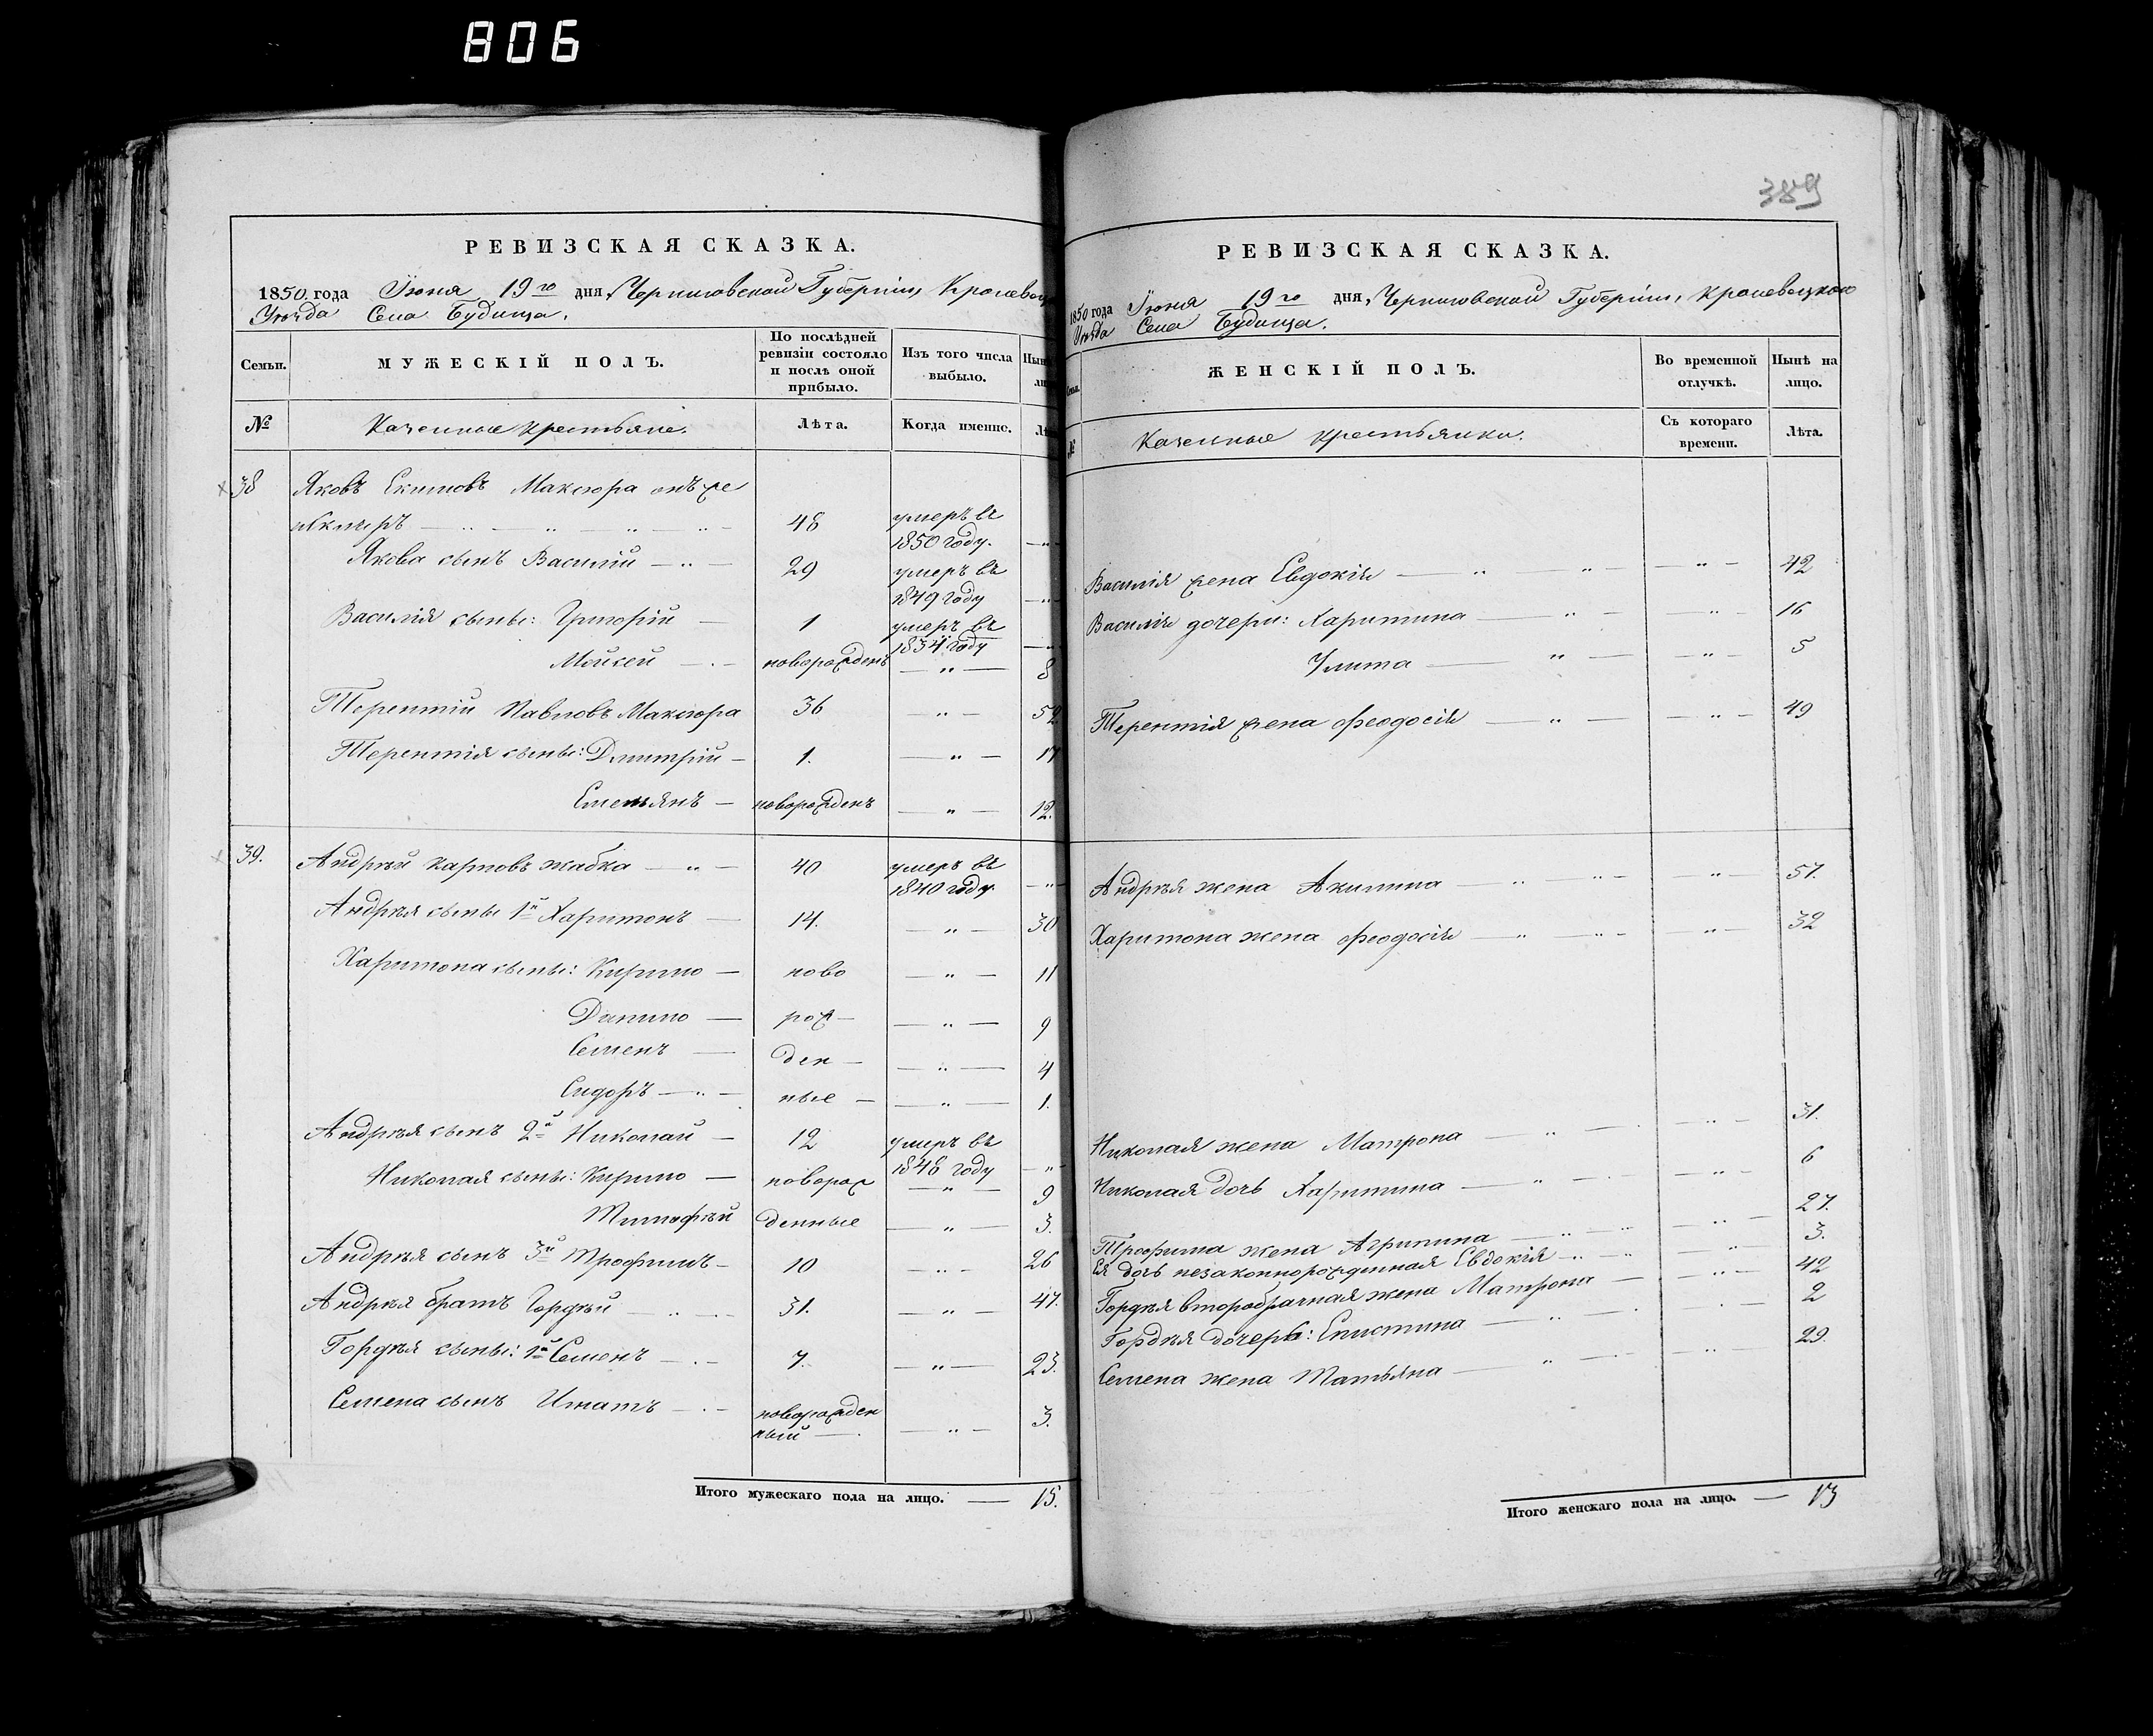 806
РЕВИЗСКАЯ СКАЗКА.
1850. года Іюня 19го дня, Черниговской Губерніи, Кролевец
Уѣзда Села Будища.
Семьи. МУЖЕСКІЙ ПОЛЪ. По послѣдней ревизіи состояло и послѣ оной прибыло. Изъ того числа выбыло. Нын
№ Казенные крестьяне. Лѣта. Когда именно. Лѣ
38 Яковъ Екимовъ Максюра онъ же
48 умеръ въ 1850 году.
Якова сынъ Василій 29 умеръ въ 1849 году
Василія сыны: Григорій 1 умеръ въ 1834 году
Мойсей новорожденъ 8
Терентій Павловъ Максюра 36 52
Терентія сыны: Дмитрій 1. 17
Емельянъ новорожденъ 12.
39. Андрѣй Карповъ Жабка 40 умеръ въ 1840 году
Андрѣя сыны 1й Харитонъ 14. 30
Харитона сыны: Кирило ново 11
Данило рож 9
Семенъ ден 4
Сидоръ ные 1.
Андрѣя сынъ 2й Николай 12 умеръ въ 1848 году
Николая сыны: Кирило поворож 9
Тимофѣй денные 3.
Андрѣя сынъ 3й Трофимъ 10 26
Андрѣя братъ Гордѣй 31. 47.
Гордѣя сыны: 1й Семенъ 7. 23.
Семена сынъ Игнатъ новорожден ный 3.
Итого мужескаго пола на лицо. 15.
389
РЕВИЗСКАЯ СКАЗКА.
1850 года Іюня 19го дня, Черниговской Губерніи, Кролевецкого
Уѣзда Села Будища.
ЖЕНСКІЙ ПОЛЪ. Во временной отлучкѣ. Нынѣ на лицо.
№ Казенные крестьянки. Съ котораго времени. Лѣта.
Василія жена Евдокія 42
Василія дочери: Харитина 16
Улита 5
Терентія жена Феодосія 49
Андрѣя жена Акилина 57.
Харитона жена Феодосія 32
Николая жена Матрона 31.
Николая дочь Харитина 6
Трофима жена Агрипина 27.
Ея дочь незаконнорожденная Евдокія 3.
Гордѣя второбрачная жена Матрона 42
Гордѣя дочерь: Епистина 2
Семена жена Татьяна 29.
Итого женскаго пола на лицо. 13